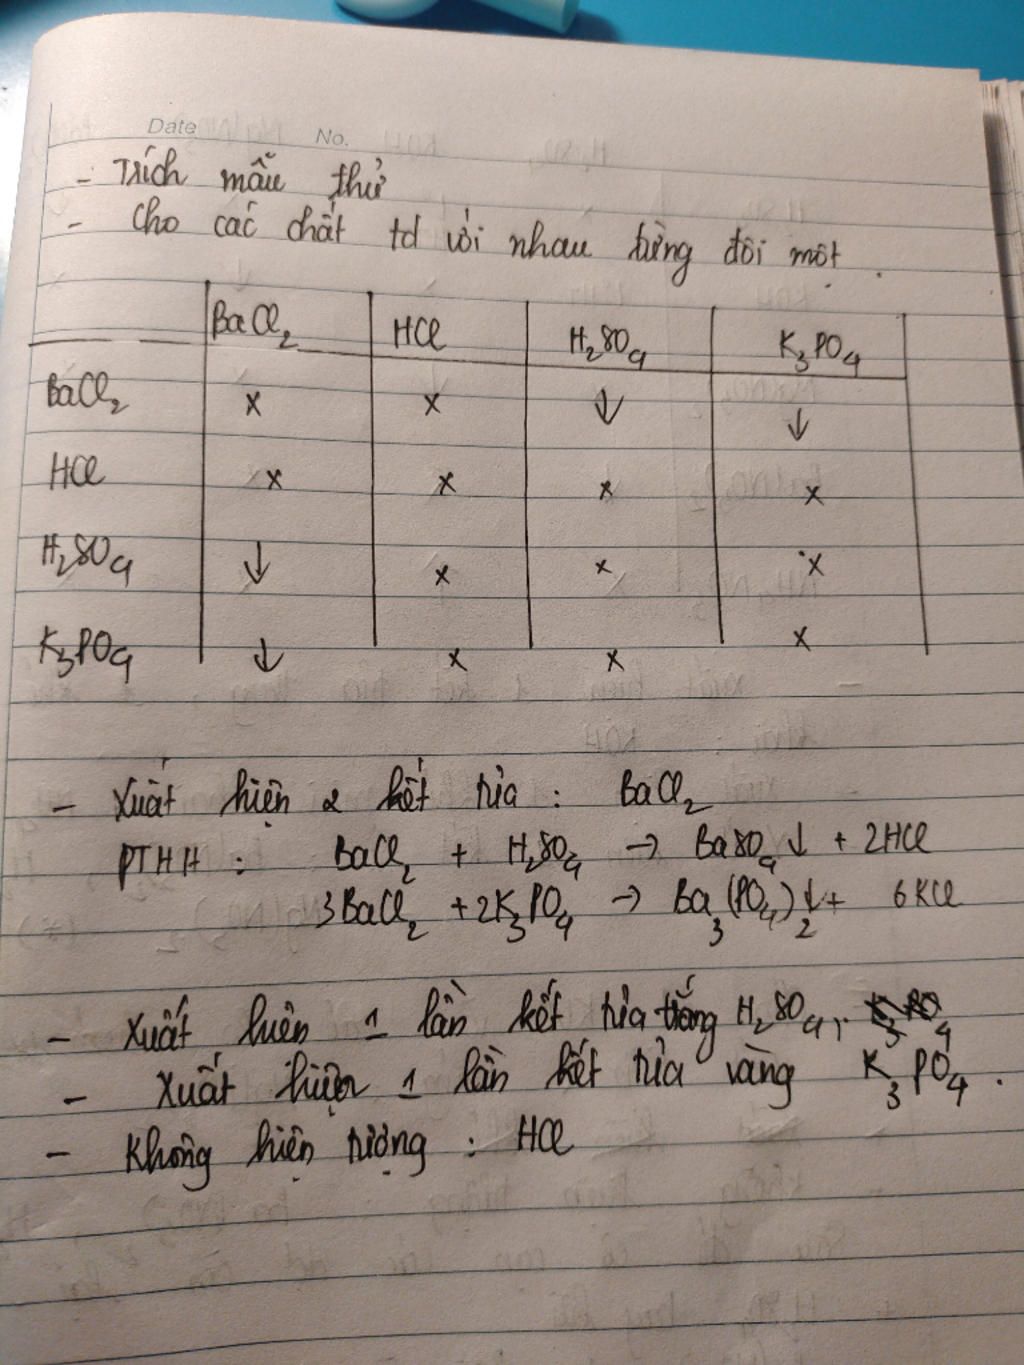 Date No.
- Trích mẫu thử
- Cho các chất td với nhau từng đôi một.
BaCl2 HCl H2SO4 K3PO4
BaCl2 x x ↓ ↓
HCl x x x x
H2SO4 ↓ x x x
K3PO4 ↓ x x x
- Xuất hiện 2 kết tủa : BaCl2
PTHH : BaCl2 + H2SO4 → BaSO4↓ + 2HCl
3BaCl2 + 2K3PO4 → Ba3(PO4)2↓ + 6KCl
- Xuất hiện 1 lần kết tủa trắng H2SO4,
- Xuất hiện 1 lần kết tủa vàng K3PO4.
- Không hiện tượng : HCl